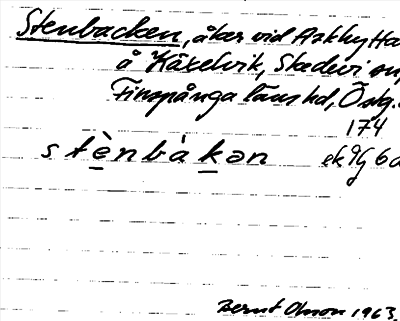 Stenbacken, åker vid Askhytta
å Käxelvik, Skedevi sn,
Finspånga läns hd, Östg.
174
stènbàkən ek 9G 6a
Bernt Olsson 1963.